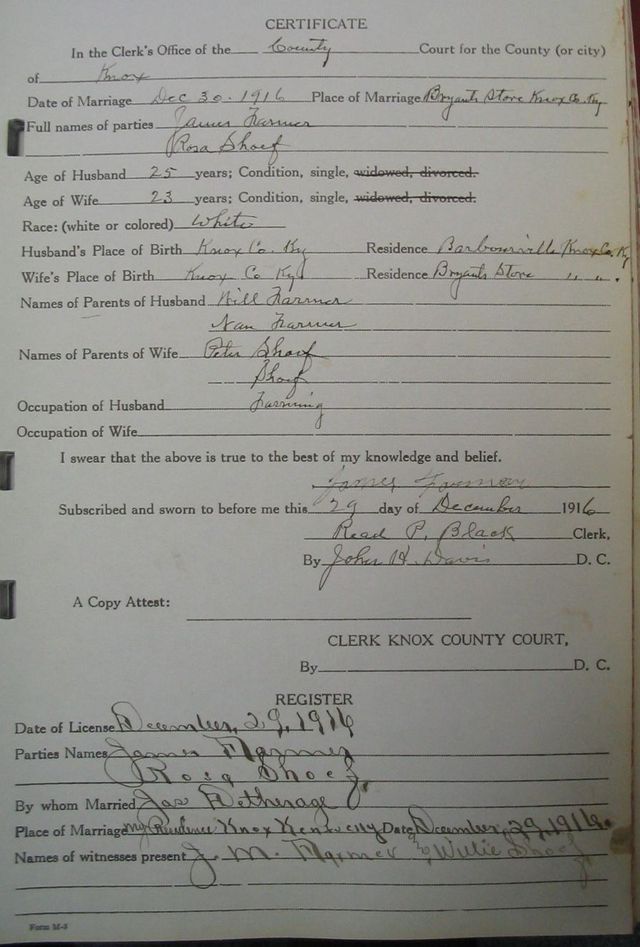 CERTIFICATE
In the Clerk's Office of the County Court for the County (or city)
of Knox
Date of Marriage Dec 30. 1916 Place of Marriage Bryants Store Knox Co. Ky
Full names of parties James Farmer
Rosa Shoef
Age of Husband 25 years; Condition, single, widowed, divorced.
Age of Wife 23 years; Condition, single, widowed, divorced.
Race: (white or colored) White
Husband's Place of Birth Knox Co. Ky Residence Barbourville Knox Co. Ky
Wife's Place of Birth Knox Co Ky Residence Bryants Store " " .
Names of Parents of Husband Will Farmer
Nan Farmer
Names of Parents of Wife Peter Shoef
Shoef
Occupation of Husband Farming
Occupation of Wife
I swear that the above is true to the best of my knowledge and belief.
James Farmer
Subscribed and sworn to before me this 29 day of December 1916
Read P. Black Clerk,
By John H. Davis D. C.
A Copy Attest:
CLERK KNOX COUNTY COURT,
By D. C.
REGISTER
Date of License December, 29, 1916
Parties Names James Farmer
Rosa Shoef
By whom Married Jas Detherage
Place of Marriage my Residence Knox Date December, 29, 1916.
Names of witnesses present J. M. Farmer & Willie Shoef
Form M-3